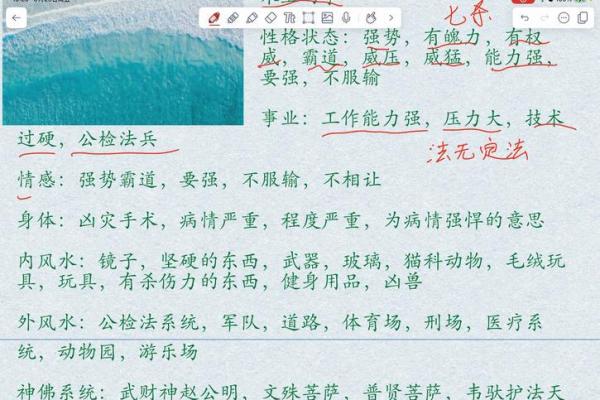 七杀
性格状态：强势，有魄力，有权
威，霸道，威压，威猛，能力强，
要强，不服输
事业：工作能力强，压力大，技术
过硬，公检法兵
法无定法
情感：强势霸道，要强，不服输，不相让
身体：凶灾手术，病情严重，程度严重，为病情强悍的意思
内风水：镜子，坚硬的东西，武器，玻璃，猫科动物，毛绒玩
具，玩具，有杀伤力的东西，健身用品，凶兽
外风水：公检法系统，军队，道路，体育场，刑场，医疗系
统，动物园，游乐场
神佛系统：武财神赵公明，文殊菩萨，普贤菩萨，韦驮护法天